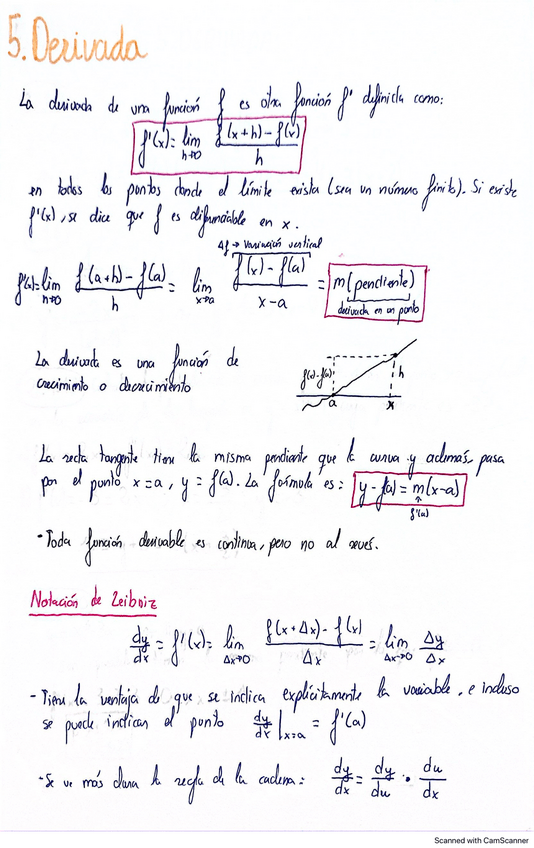 5. Derivada
La derivada de una función f es otra función f' definida como:
f'(x) = lim h→0 f(x+h) - f(x) / h
en todos los puntos donde el límite exista (sea un número finito). Si existe
f'(x), se dice que f es diferenciable en x.
Δf → Variación vertical
f'(a) = lim h→0 f(a+h) - f(a) / h = lim x→a f(x) - f(a) / x-a = m (pendiente)
derivada en un punto
La derivada es una función de
crecimiento o decrecimiento
f(x)-f(a)
h
a x
La recta tangente tiene la misma pendiente que la curva y además, pasa
por el punto x=a, y = f(a). La fórmula es: y - f(a) = m(x-a)
f'(a)
- Toda función derivable es continua, pero no al revés.
Notación de Leibniz
dy/dx = f'(x) = lim Δx→0 f(x+Δx) - f(x) / Δx = lim Δx→0 Δy/Δx
- Tiene la ventaja de que se indica explícitamente la variable, e incluso
se puede indicar el punto dy/dx |x=a = f'(a)
- Se ve más clara la regla de la cadena: dy/dx = dy/du · du/dx
Scanned with CamScanner